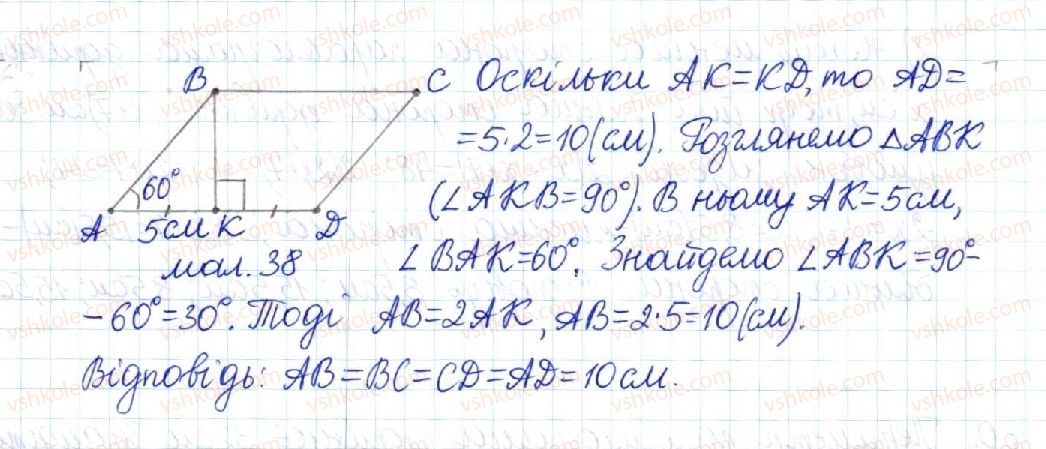 B C Оскільки AK=KD, то AD=
=5·2=10(см). Розглянемо △ABK
60° (∠AKB=90°). В ньому AK=5см,
A 5см K D
мал. 38 ∠BAK=60°. Знайдемо ∠ABK=90°-
-60°=30°. Тоді AB=2AK, AB=2·5=10(см).
Відповідь: AB=BC=CD=AD=10см.
vshkole.com